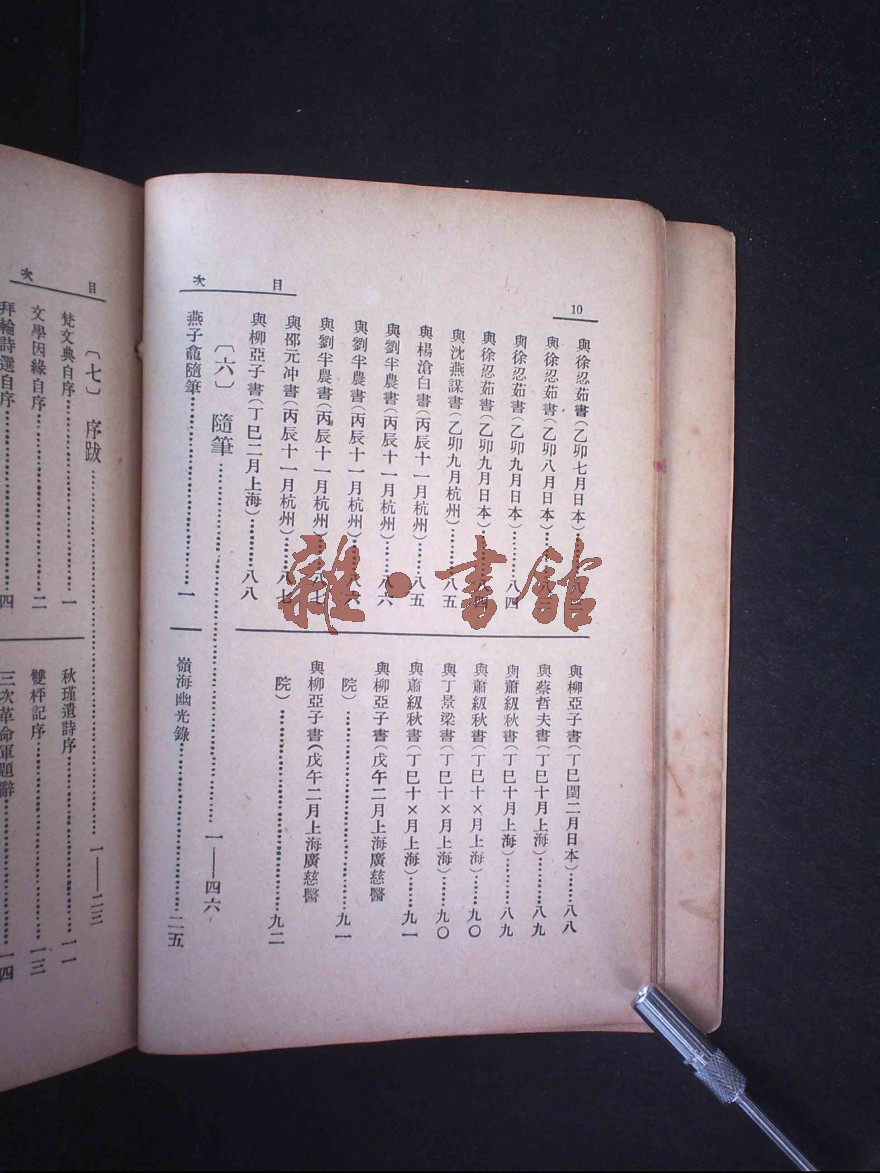 10
目次
與徐忍茹書(乙卯七月日本)
與徐忍茹書(乙卯八月日本)
與徐忍茹書(乙卯九月日本)……八四
與徐忍茹書(乙卯九月日本)……八四
與沈燕謀書(乙卯九月杭州)……八五
與楊滄白書(丙辰十一月杭州)……八五
與劉半農書(丙辰十一月杭州)……八六
與劉半農書(丙辰十一月杭州)……八六
與劉半農書(丙辰十一月杭州)……八七
與邵元冲書(丙辰十一月杭州)……八七
與柳亞子書(丁巳二月上海)……八八
與柳亞子書(丁巳閏二月日本)……八八
與蔡哲夫書(丁巳十月上海)……八九
與蕭紉秋書(丁巳十月上海)……八九
與蕭紉秋書(丁巳十×月上海)……九〇
與丁景梁書(丁巳十×月上海)……九〇
與蕭紉秋書(丁巳十×月上海)……九一
與柳亞子書(戊午二月上海廣慈醫
院)……九一
與柳亞子書(戊午二月上海廣慈醫
院)……九二
〔六〕隨筆……一——四六
燕子龕隨筆……一
嶺海幽光錄……二五
目次
〔七〕序跋……一——二三
梵文典自序……一
文學因緣自序……二
拜輪詩選自序……四
秋瑾遺詩序……一一
雙枰記序……一三
三次革命軍題辭……一四
雜·書館